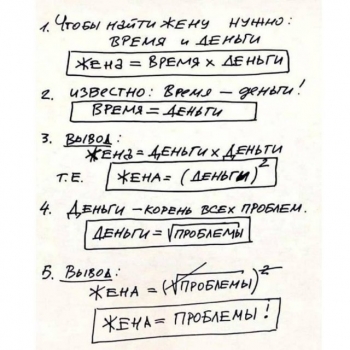 1. Чтобы найти жену нужно:
время и деньги
жена = время × деньги
2. известно: время – деньги!
время = деньги
3. вывод:
жена = деньги × деньги
т.е. жена = (деньги)²
4. Деньги – корень всех проблем.
деньги = √проблемы
5. вывод:
жена = (√проблемы)²
жена = проблемы!